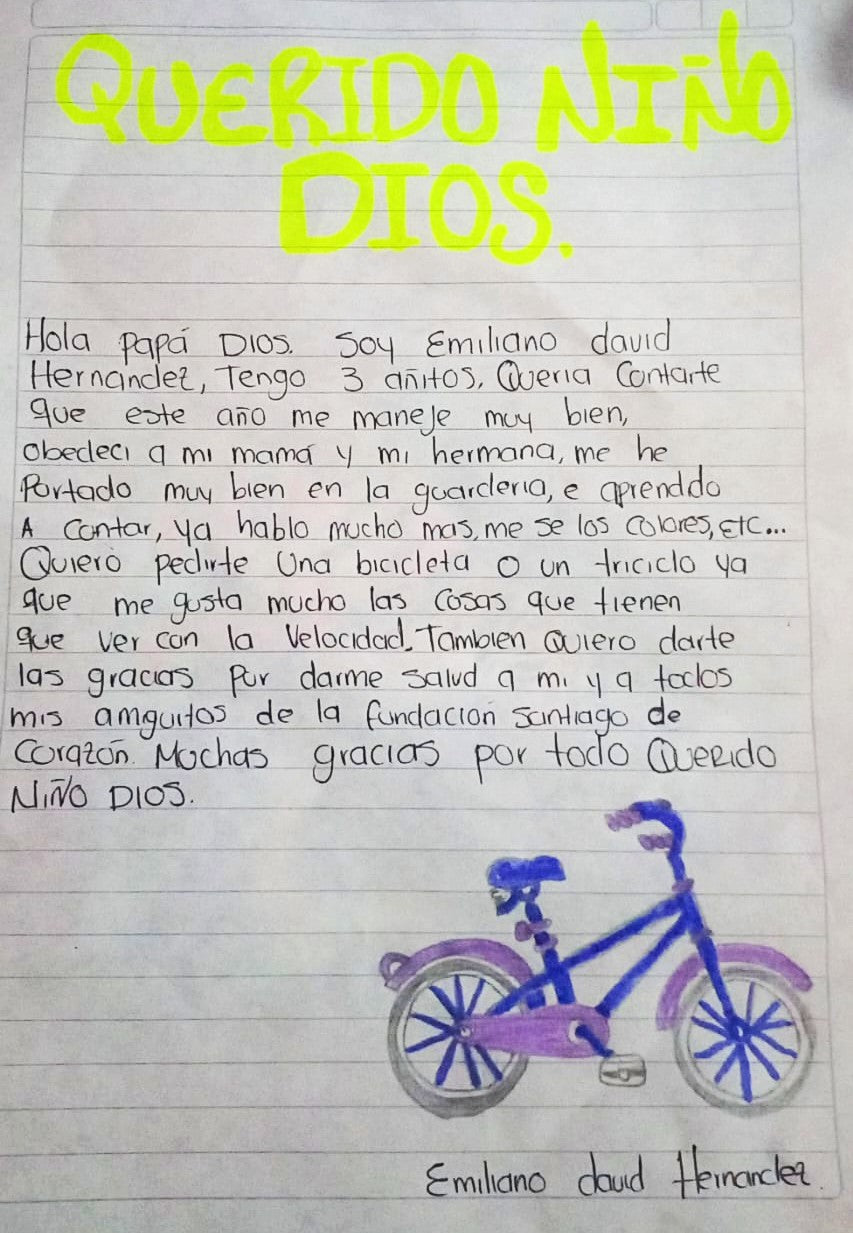 QUERIDO NIÑO
DIOS.
Hola papá DIOS. Soy Emiliano david
Hernandez, Tengo 3 añitos, Queria Contarte
que este año me maneje muy bien,
obedeci a mi mamá y mi hermana, me he
Portado muy bien en la guarderia, e aprenddo
A Contar, ya hablo mucho mas, me se los colores, etc...
Quiero pedirte Una bicicleta o un triciclo ya
que me gusta mucho las cosas que tienen
que ver con la Velocidad. Tambien Quiero darte
las gracias Por darme salud a mi y a todos
mis amguitos de la fundacion santiago de
Corazón. Muchas gracias por todo QueRIdo
NIÑO DIOS.
Emiliano david Hernandez.